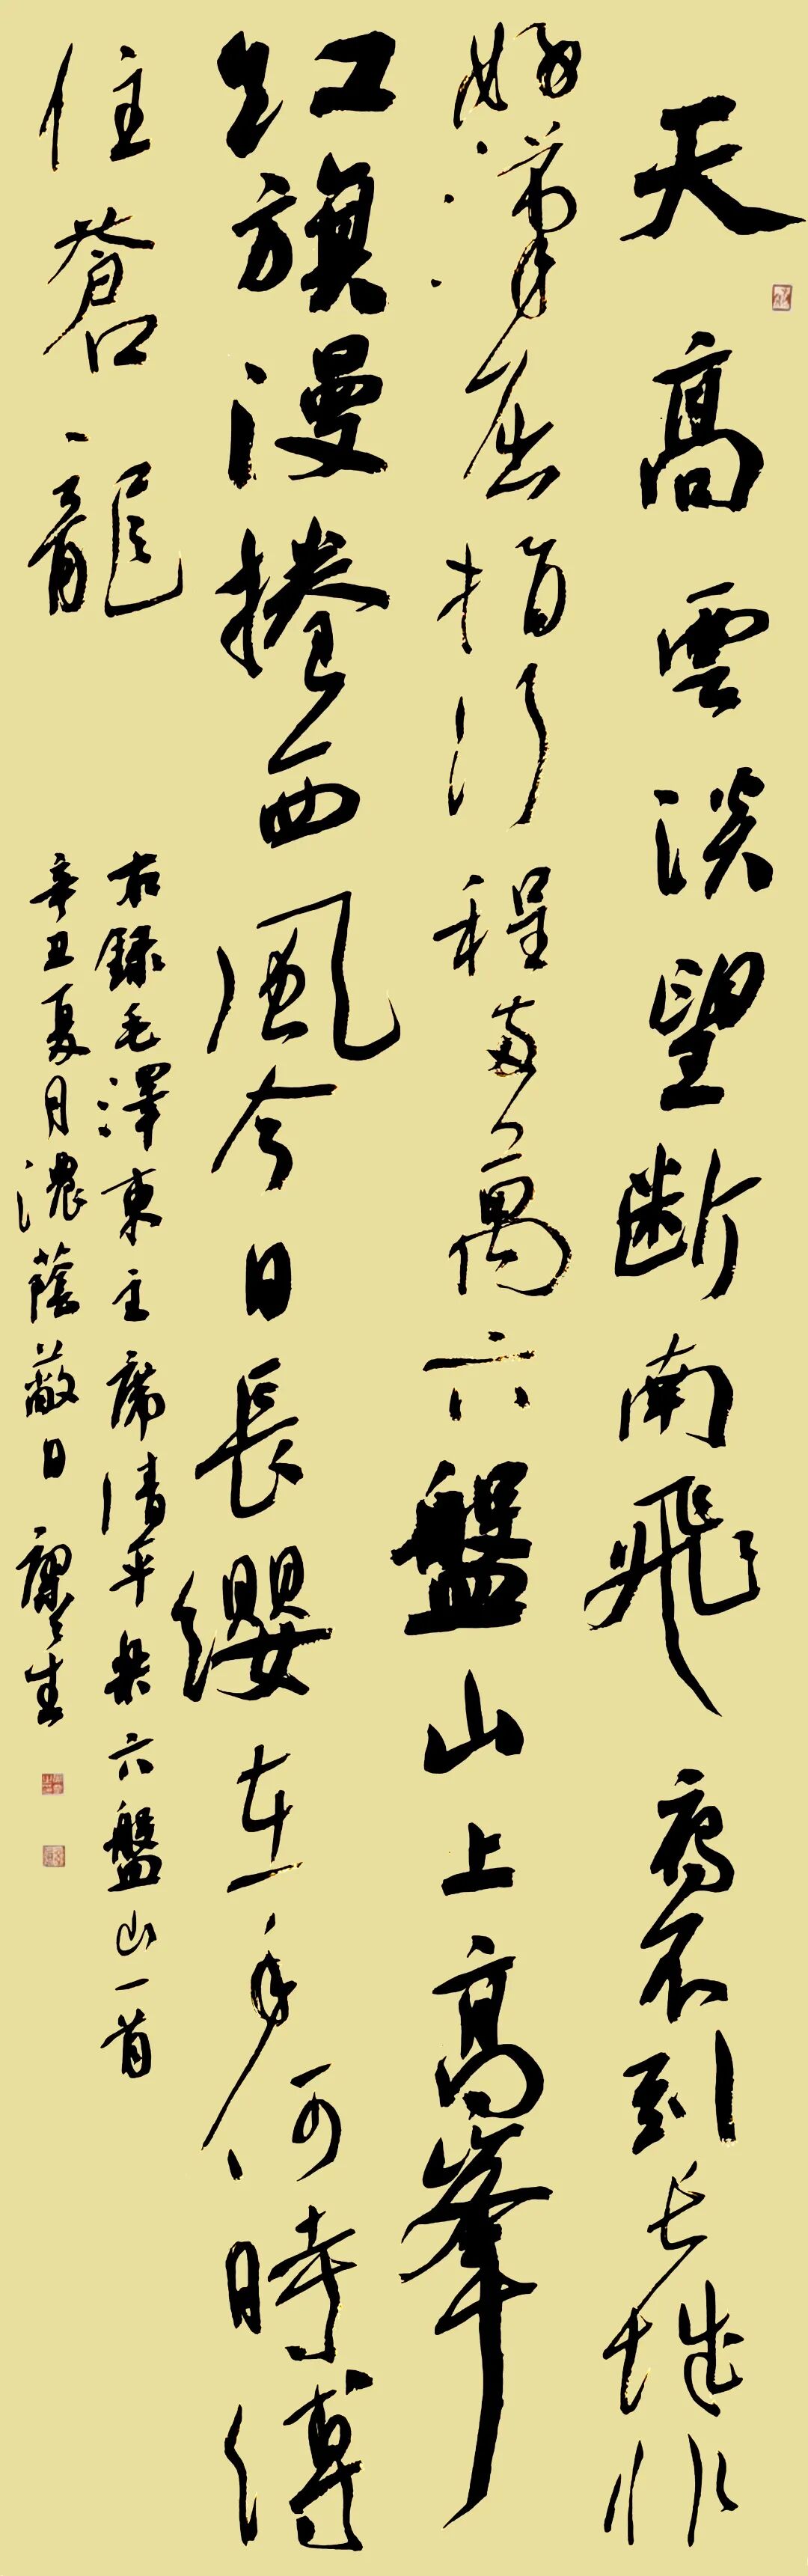 天高雲淡望断南飛雁不到长城非
好漢屈指行程两萬六盤山上高峯
红旗漫捲西風今日長纓在手何時縛
住蒼龍
右録毛澤東主席清平樂六盤山一首
辛丑夏月濃蔭蔽日 生